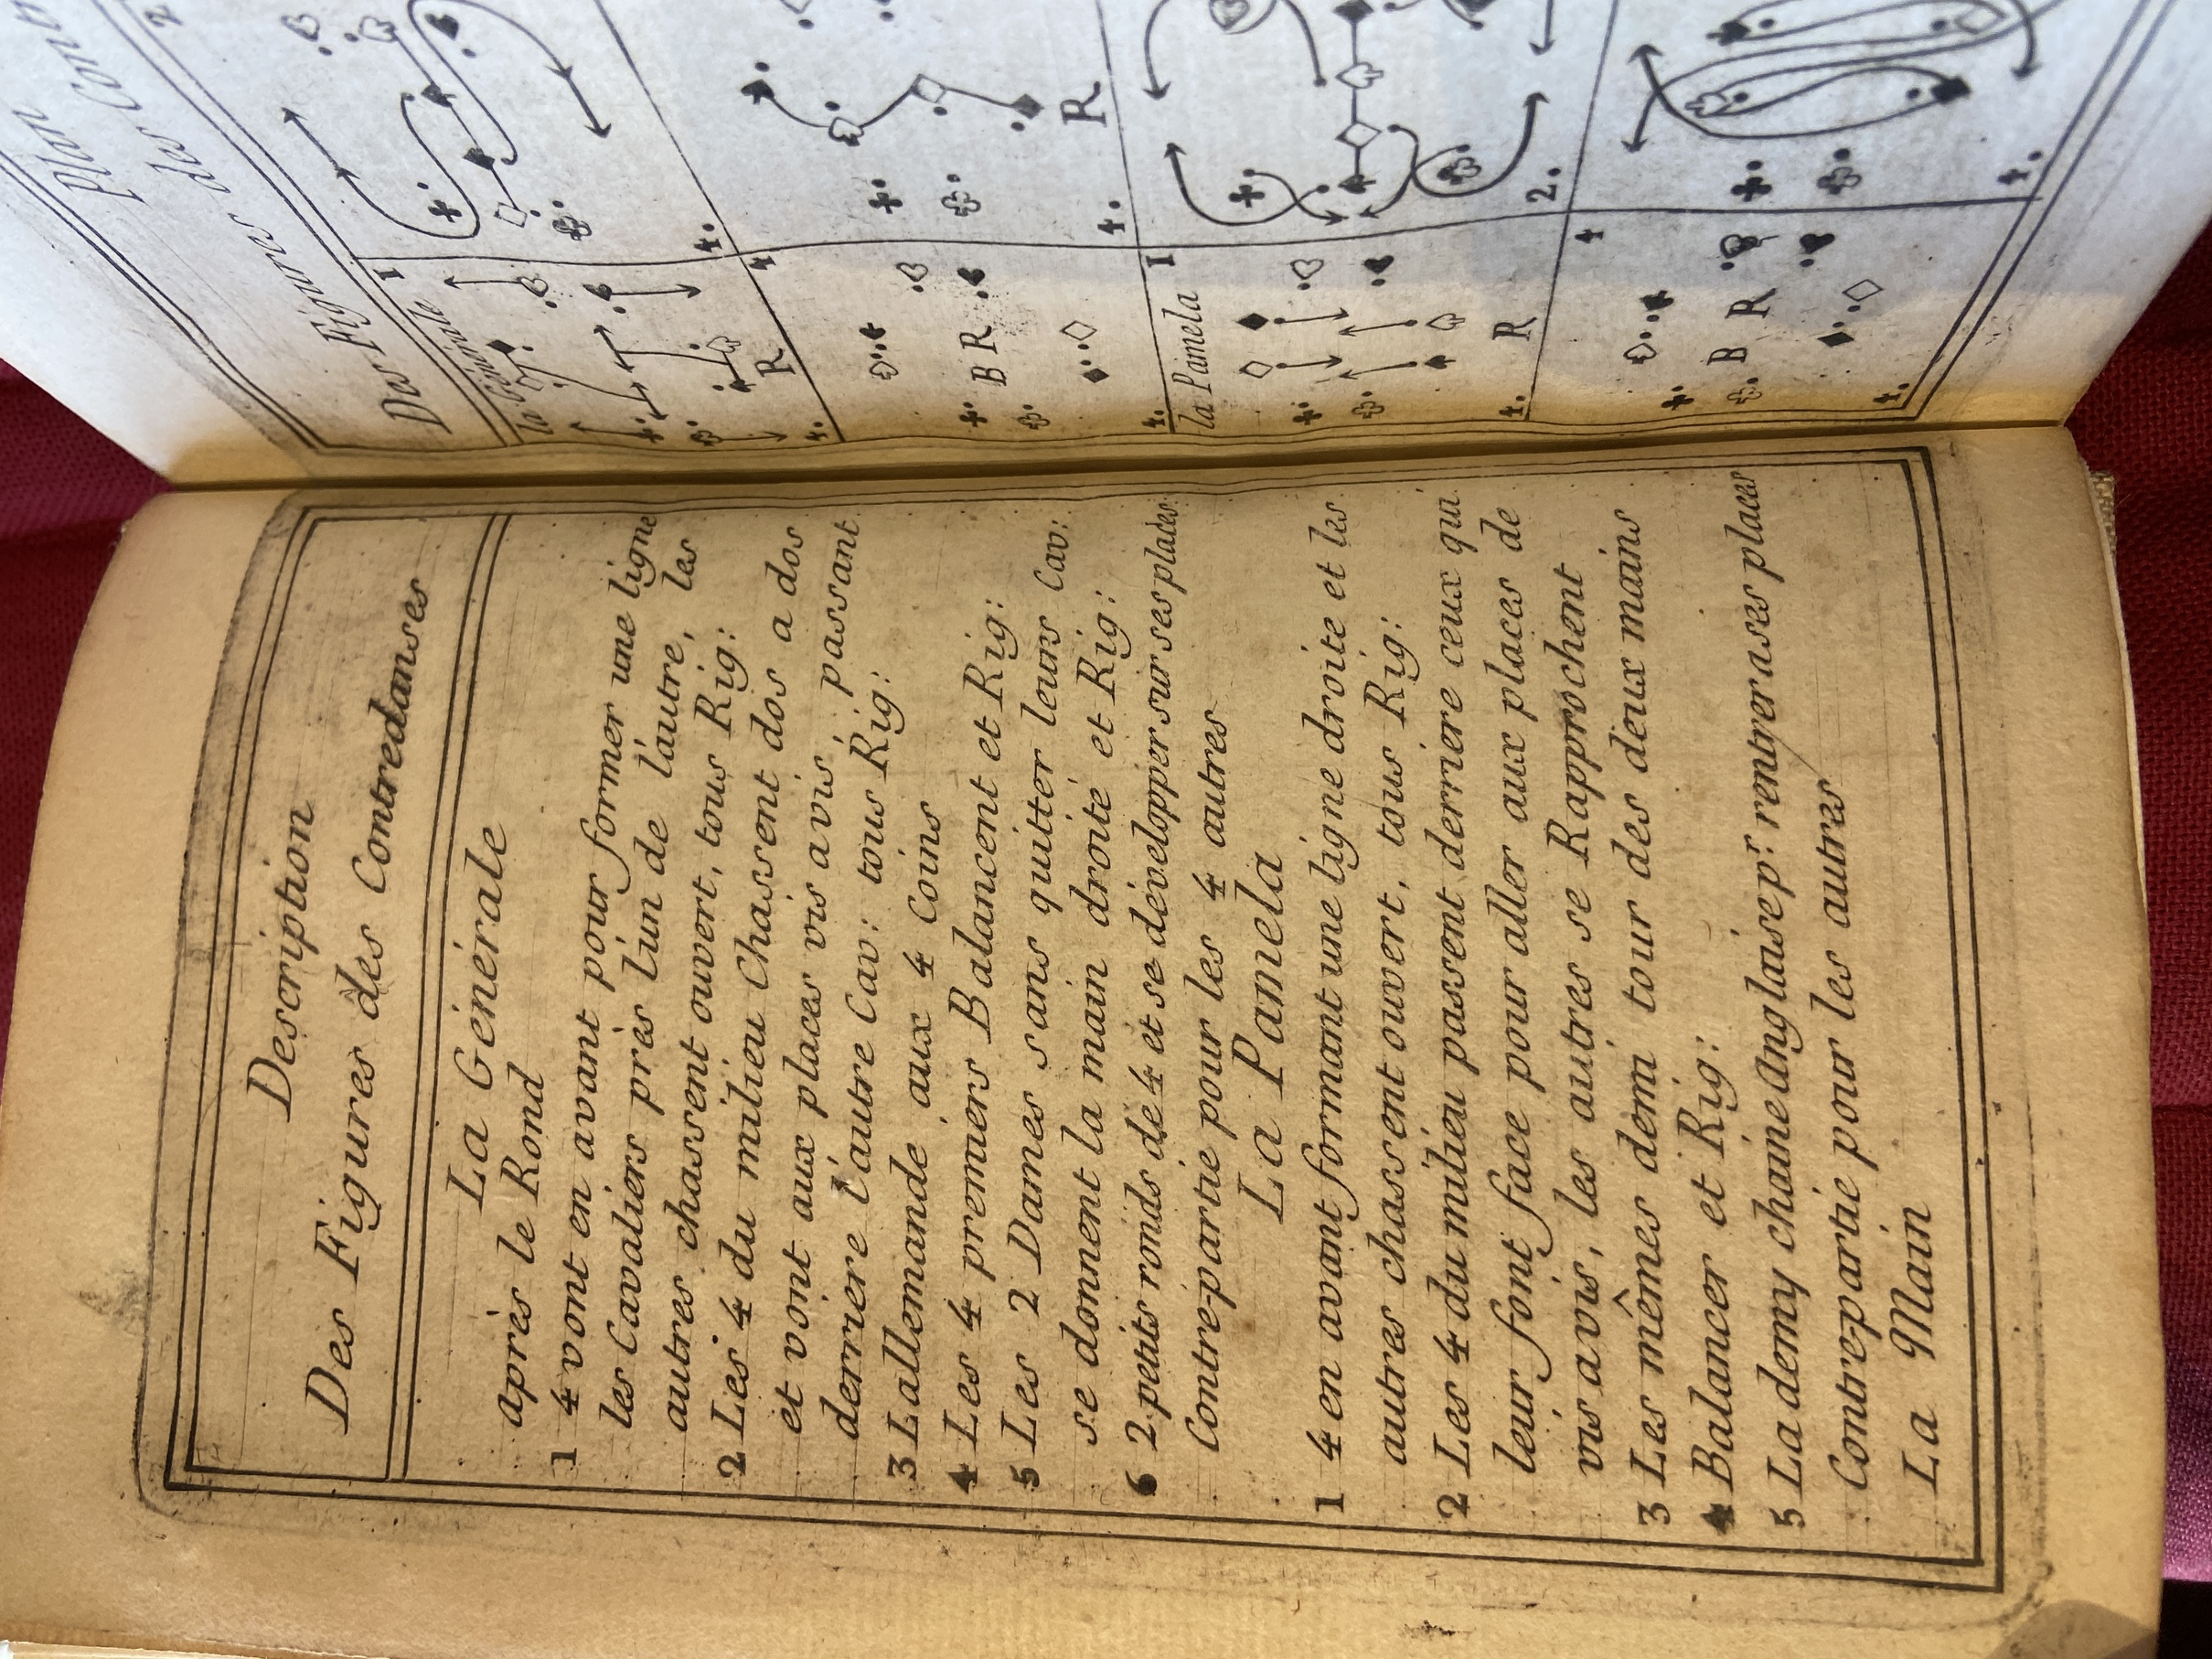 Description
Des Figures des Contredanses
La Générale
après le Rond
1 4 vont en avant pour former une ligne
les Cavaliers près l'un de l'autre, les
autres chassent ouvert, tous Rig:
2 Les 4 du milieu Chassent dos a dos
et vont aux places vis avis, passant
derriere l'autre Cav: tous Rig:
3 Lallemande aux 4 Coins
4 Les 4 premiers Balancent et Rig:
5 Les 2 Dames sans quitter leurs Cav:
se donnent la main droite et Rig:
6 2 petits ronds de 4 et se développer sur ses places
Contre-partie pour les 4 autres
La Pamela
1 4 en avant formant une ligne droite et les
autres chassent ouvert, tous Rig:
2 Les 4 du milieu passent derriere ceux qui
leur font face pour aller aux places de
vis avis, les autres se Rapprochent
3 Les mêmes demi tour des deux mains
4 Balancer et Rig:
5 La demy chaine Anglaise pr. rentrer a ses places
Contre-partie pour les autres
La Main
Plan
Des Figures des Cont
la Générale
1
2
R
4.
4.
4
B R
R
4.
4.
la Pamela
1
R
4.
2.
4
B R
4.
4.